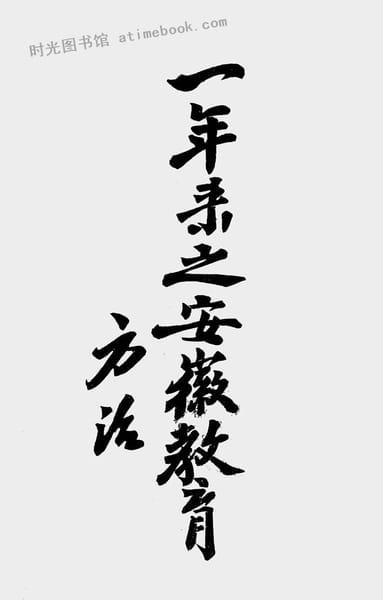 时光图书馆 atimebook.com
一年来之安徽教育
方治